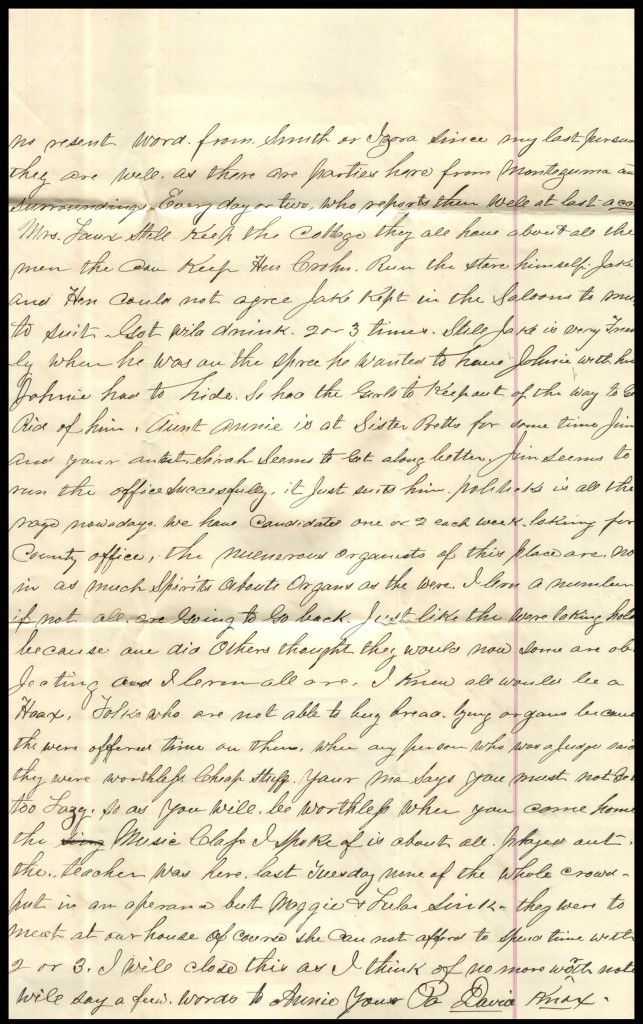 no resent word from Smith or Izora since my last person
they are well. as there are parties here from Montezuma an
surroundings Every day or two, who reports them well at last acc
Mrs. Faux Still Keep the Cottage they all have about all the
men the can Keep Hen Crohn. Run the store himself. Jake
and Hen could not agree Jake Kept in the Saloons to mu
to suit Got drunk 2 or 3 times. Still Jake is very Frend
ly when he was on the spree he wanted to have Johnie with him
Johnie had to hide. So had the Girls to Keep out of the way to Ge
Rid of him, Aunt Annie is at Sister Botts for some time Jim
and your aunt Sirah Seems to Get along better, Jim seems to
run the office Successfully. it Just suits him. politicks is all the
rage nowdays. we have Candidates one or 2 each week. loking for
County office, the numerous organists of this place are. no
in as much Spirits abouts Organs as the were. I lern a number
if not all are Going to Go back Just like the were taking hold
because one did Others thought they would now some are ob
Jecting and I lern all are. I Knew all would be a
Hoax. Folks who are not able to buy bread. buy organs because
the were offered time on them. when any person who was a Judge said
they were worthless Cheap Stuff. Your ma Says you must not Get
too Lazy. so as you will be worthless when you come home
the Music Class I spoke of is about all. played out.
the teacher was here last Tuesday none of the whole crowd
put in an aperance but Maggie & Lula Sink they were to
meat at our house of course she can not afford to spend time with
2 or 3. I will close this as I think of no more worth note
will say a few words to Annie Your Pa David Knox